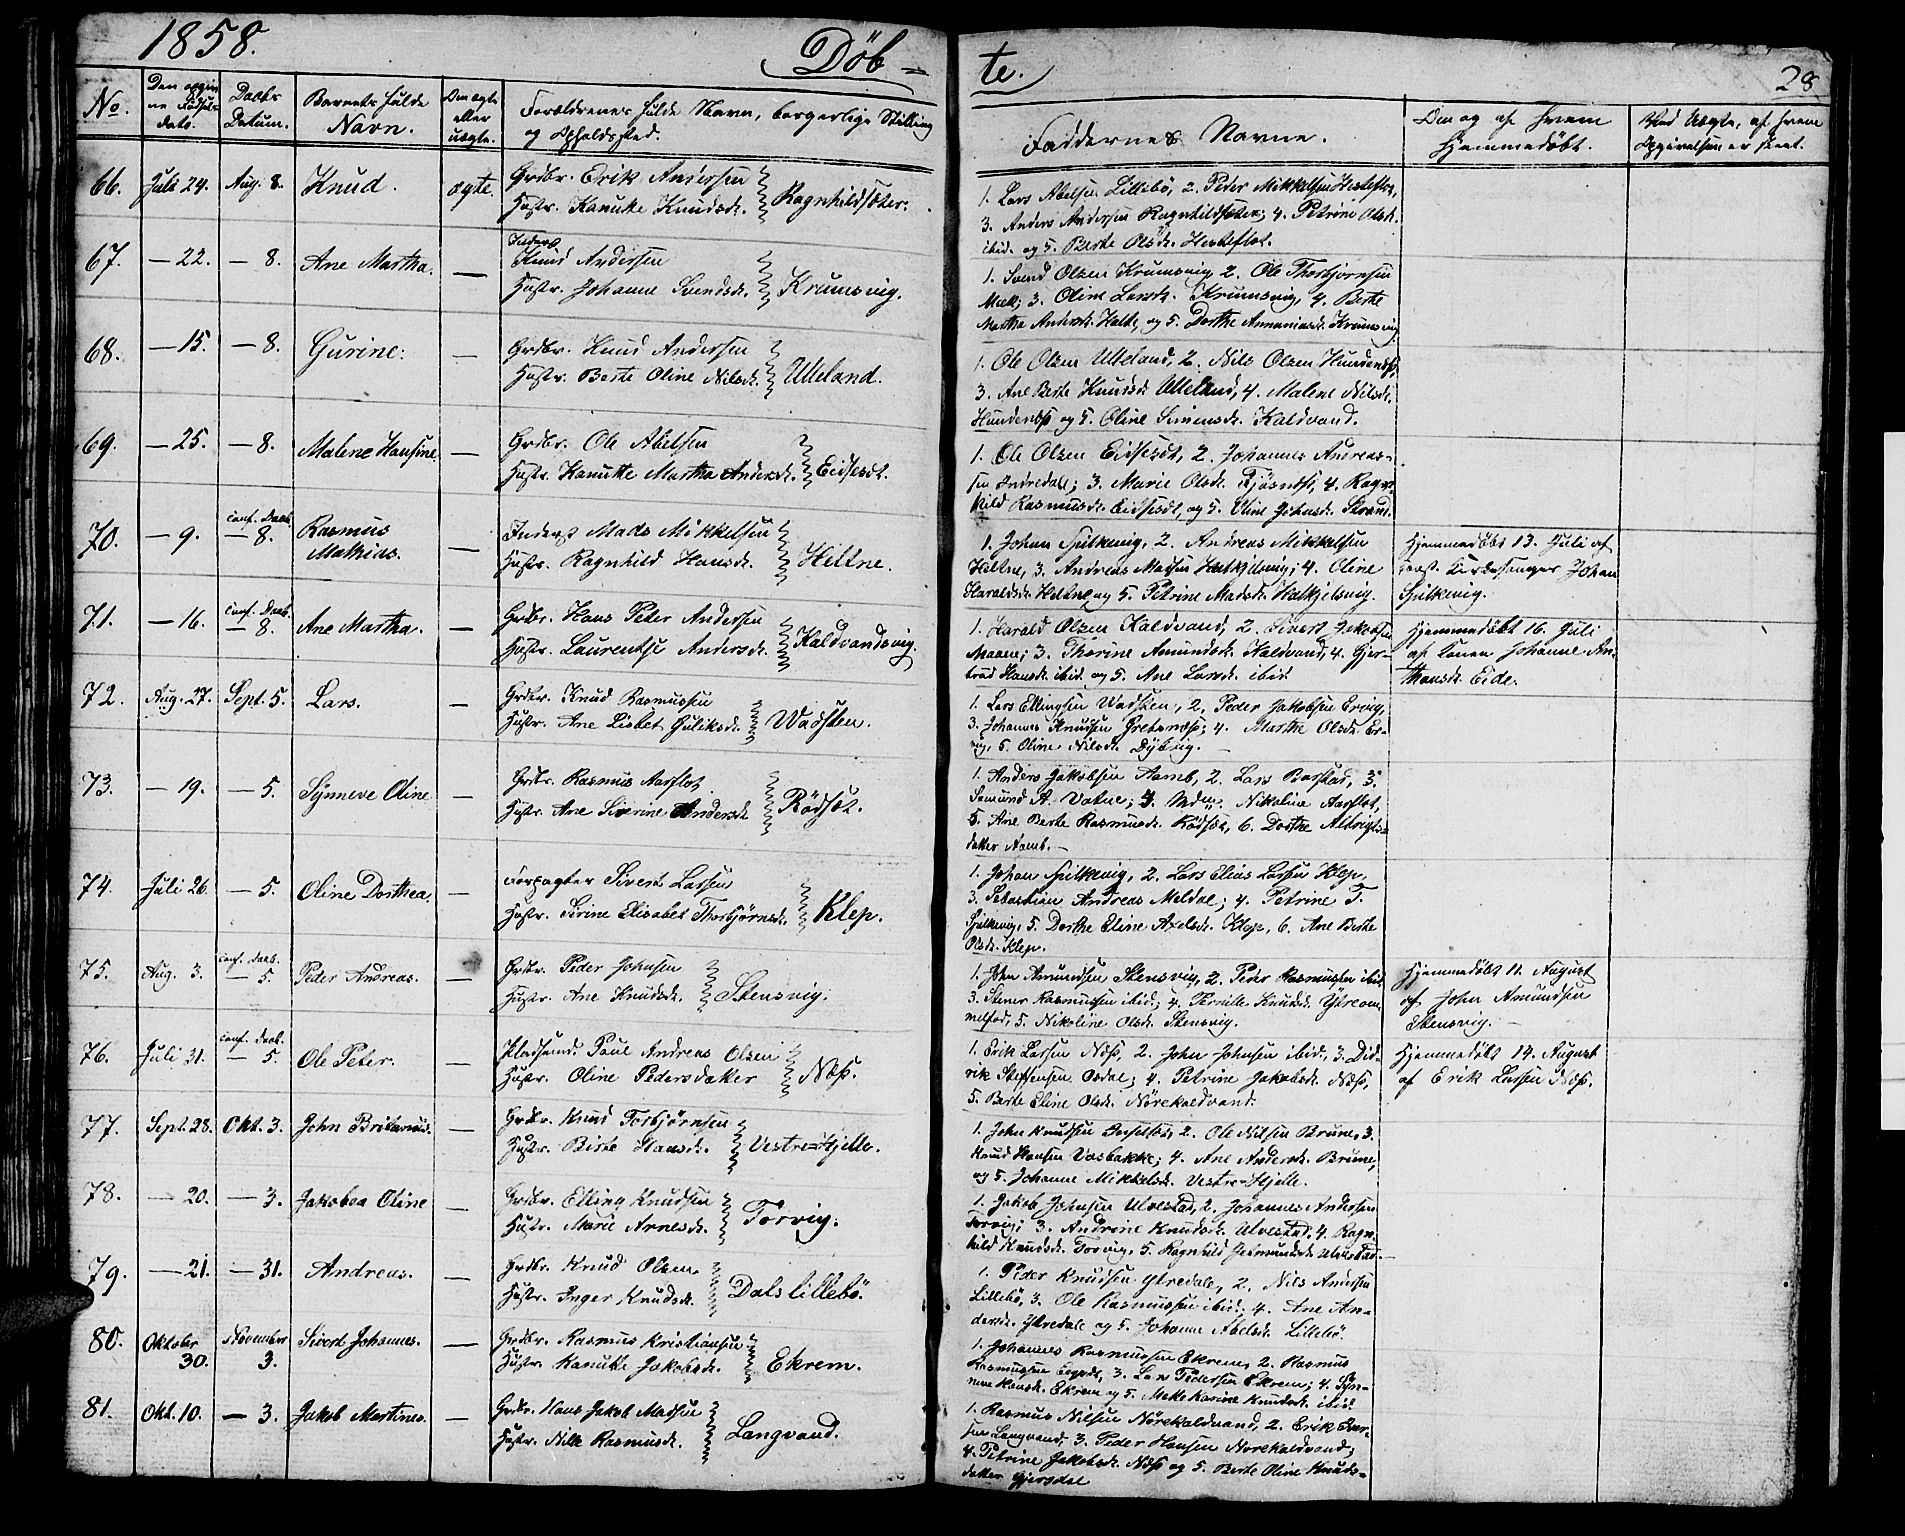 1858.
Döb=
te.
28
No.
Den opgiv-
ne Fødsels-
dato.
Daabs
Datum.
Barnets fulde
Navn.
Om ægte
eller
uægte.
Forældrenes fulde Navn, borgerlige Stilling
og Opholdssted.
Faddernes Navne.
Om og af hvem
Hjemmedøbt.
Ved Uægte, af hvem
Opgivelsen er skeet.
66. Juli 24. Aug. 8. Knud. ægte.
Grdbr. Erik Andersen
Hustr. Kanutte Knudsdr.
Ragnhildsæter.
1. Lars Abelsen Lillebö, 2. Peder Mikkelsen Hesteflot,
3. Anders Andersen Ragnhildsæter; 4. Petrine Olsdr.
ibid. og 5. Berte Olsdr. Hesteflot.
67. — 22. — 8. Ane Martha. —
Inderst
Knud Andersen
Hustr. Johanne Svendsdr.
Krumsvig.
1. Svend Olsen Krumsvig, 2. Ole Thorbjørnsen
Mæk; 3. Oline Larsdr. Krumsvig, 4. Berte
Martha Andersdr. Holte, og 5. Dorthe Annaniasdr. Krumsvig
68. — 15. — 8. Gurine. —
Grdbr. Knud Andersen
Hustr. Berte Oline Nilsdr.
Ulleland.
1. Ole Olsen Ulleland, 2. Nils Olsen Hundnæss,
3. Ane Berte Knudsdr. Ulleland, 4. Malene Nilsdr.
Hundnæss og 5. Oline Simensdr. Kaldvand.
69. — 25. — 8. Malene Hansine. —
Grdbr. Ole Abelsen
Hustr. Kanutte Martha Andersdr.
Eidsesdt.
1. Ole Olsen Eidsesdt, 2. Johannes Andreas-
sen Indredale; 3. Marie Olsdr. Fjörnæss, 4. Ragn-
hild Rasmusdr. Eidsesdt, og 5. Oline Johnsdr. Strand.
70. — 9. conf. Daab. — 8. Rasmus
Mathias. —
Inderst Mads Mikkelsen
Hustr. Ragnhild Hansdr.
Hiltne.
1. Johan Spilkevig, 2. Andreas Mikkelsen
Hiltne, 3. Andreas Madsen Hatkjelsvig; 4. Oline
Haraldsdr. Hiltne og 5. Petrine Madsdr. Hatkjelsvig.
Hjemmedøbt 13. Juli af
const. Kirkesanger Johan
Spilkevig.
71. — 16. conf. Daab. — 8. Ane Martha. —
Grdbr. Hans Peter Andersen
Hustr. Laurentse Andersdr.
Kaldvandsvig.
1. Harald Olsen Kaldvand, 2. Sivert Jakobsen
Maane; 3. Thorine Amundsdr. Kaldvand, 4. Gjer-
trud Hansdr. ibid. og 5. Ane Larsdr. ibid.
Hjemmedøbt 16. Juli
af Konen Johanne An-
thonsdr. Eide.
72. Aug. 27. Sept. 5. Lars. —
Grdbr. Knud Rasmussen
Hustr. Ane Lisbet Guliksdr.
Wadsten.
1. Lars Ellingsen Wadsten, 2. Peder Jakobsen Ervig,
3. Johannes Knudsen Grebsnæss; 4. Marthe Olsdr. Er-
vig, 5. Oline Nilsdr. Dybvig. —
73. — 19. — 5. Synneve Oline —
Grdbr. Rasmus Aarflot.
Hustr. Ane Siverine Andersdr.
Rödsæt.
1. Anders Jakobsen Aamb, 2. Lars Barstad, 3.
Samund A. Vatne; 4. Mdm. Nikoline Aarflot,
5. Ane Berte Rasmusdr. Rödsæt, 6. Dorthe Albrigts-
datter Aamb. —
74. Juli 26. — 5. Oline Dorthea. —
Forpagter Sivert Larsen
Hustr. Sirine Elisabet Thorbjørnsdr.
Klep.
1. Johan Spilkevig, 2. Lars Elias Larsen Klep,
3. Sebastian Andreas Meldal; 4. Petrine T.
Spilkevig, 5. Dorthe Eline Axelsdr. Klep, 6. Ane Berte
Olsdr. Klep.
75. Aug. 3. conf. Daab. — 5. Peder Andreas. —
Grdbr. Peder Johnsen
Hustr. Ane Knudsdr.
Stensvig.
1. John Amundsen Stensvig, 2. Peder Rasmussen ibid.
3. Stener Rasmussen ibid; 4. Pernille Knudsdr. Ytreom-
melfod, 5. Nikoline Olsdr. Stensvig.
Hjemmedøbt 11. August
af John Amundsen
Stensvig. —
76. Juli 31. conf. Daab. — 5. Ole Peter. —
Pladsmd. Poul Andreas Olsen
Hustr. Oline Pedersdatter
Næss.
1. Erik Larsen Næss, 2. John Johnsen ibid., 3. Did-
rik Steffensen Osdal; 4. Petrine Jakobsdr. Næss,
5. Berte Eline Olsdr. Nörekaldvand.
Hjemmedøbt 14. August
af Erik Larsen Næss.
77. Sept. 28. Okt. 3. John Britanus. —
Grdbr. Knud Torbjørnsen
Hustr. Birte Hansdr.
Vestre-Hjelle.
1. John Knudsen Indselsæt, 2. Ole Nilsen Brune, 3.
Knud Hansen Vasbakke; 4. Ane Andersdr. Brune,
og 5. Johanne Mikkelsdr. Vestre-Hjelle.
78. — 20. — 3. Jakobea Oline —
Grdbr. Elling Knudsen
Hustr. Marie Arnesdr.
Torvig.
1. Jakob Johnsen Ulvestad, 2. Johannes Andersen
Torvig; 3. Andrine Knudsdr. Ulvestad, 4. Ragn-
hild Knudsdr. Torvig, 5. Ragnhild Gudmundsdr. Ulvestad.
79. — 21. — 31. Andreas. —
Grdbr. Knud Olsen
Hustr. Inger Knudsdr.
Dalslillebö.
1. Peder Knudsen Ytredale, 2. Nils Andersen
Lillebö, 3. Ole Rasmussen ibid; 4. Ane An-
dersdr. Ytredale og 5. Johanne Abelsdr. Lillebö.
80. Oktober
30. November
3. Sivert Johannes. —
Grdbr. Rasmus Kristiansen
Hustr. Kanutte Jakobsdr.
Ekrem.
1. Johannes Rasmussen Ekrem, 2. Rasmus
Rasmussen, 3. Lars Pedersen Ekrem; 4. Syn-
neve Hansdr. Ekrem og 5. Mette Karine Knudsdr. ibid.
81. Okt. 10. — 3. Jakob Martinus. —
Grdbr. Hans Jakob Madsen
Hustr. Nille Rasmusdr.
Langvand.
1. Rasmus Nilsen Nörekaldvand, 2. Erik Iver-
sen Langvand, 3. Peder Hansen Nörekaldvand;
4. Petrine Jakobsdr. Næss og 5. Berte Oline Knuds-
datter Gjersdal